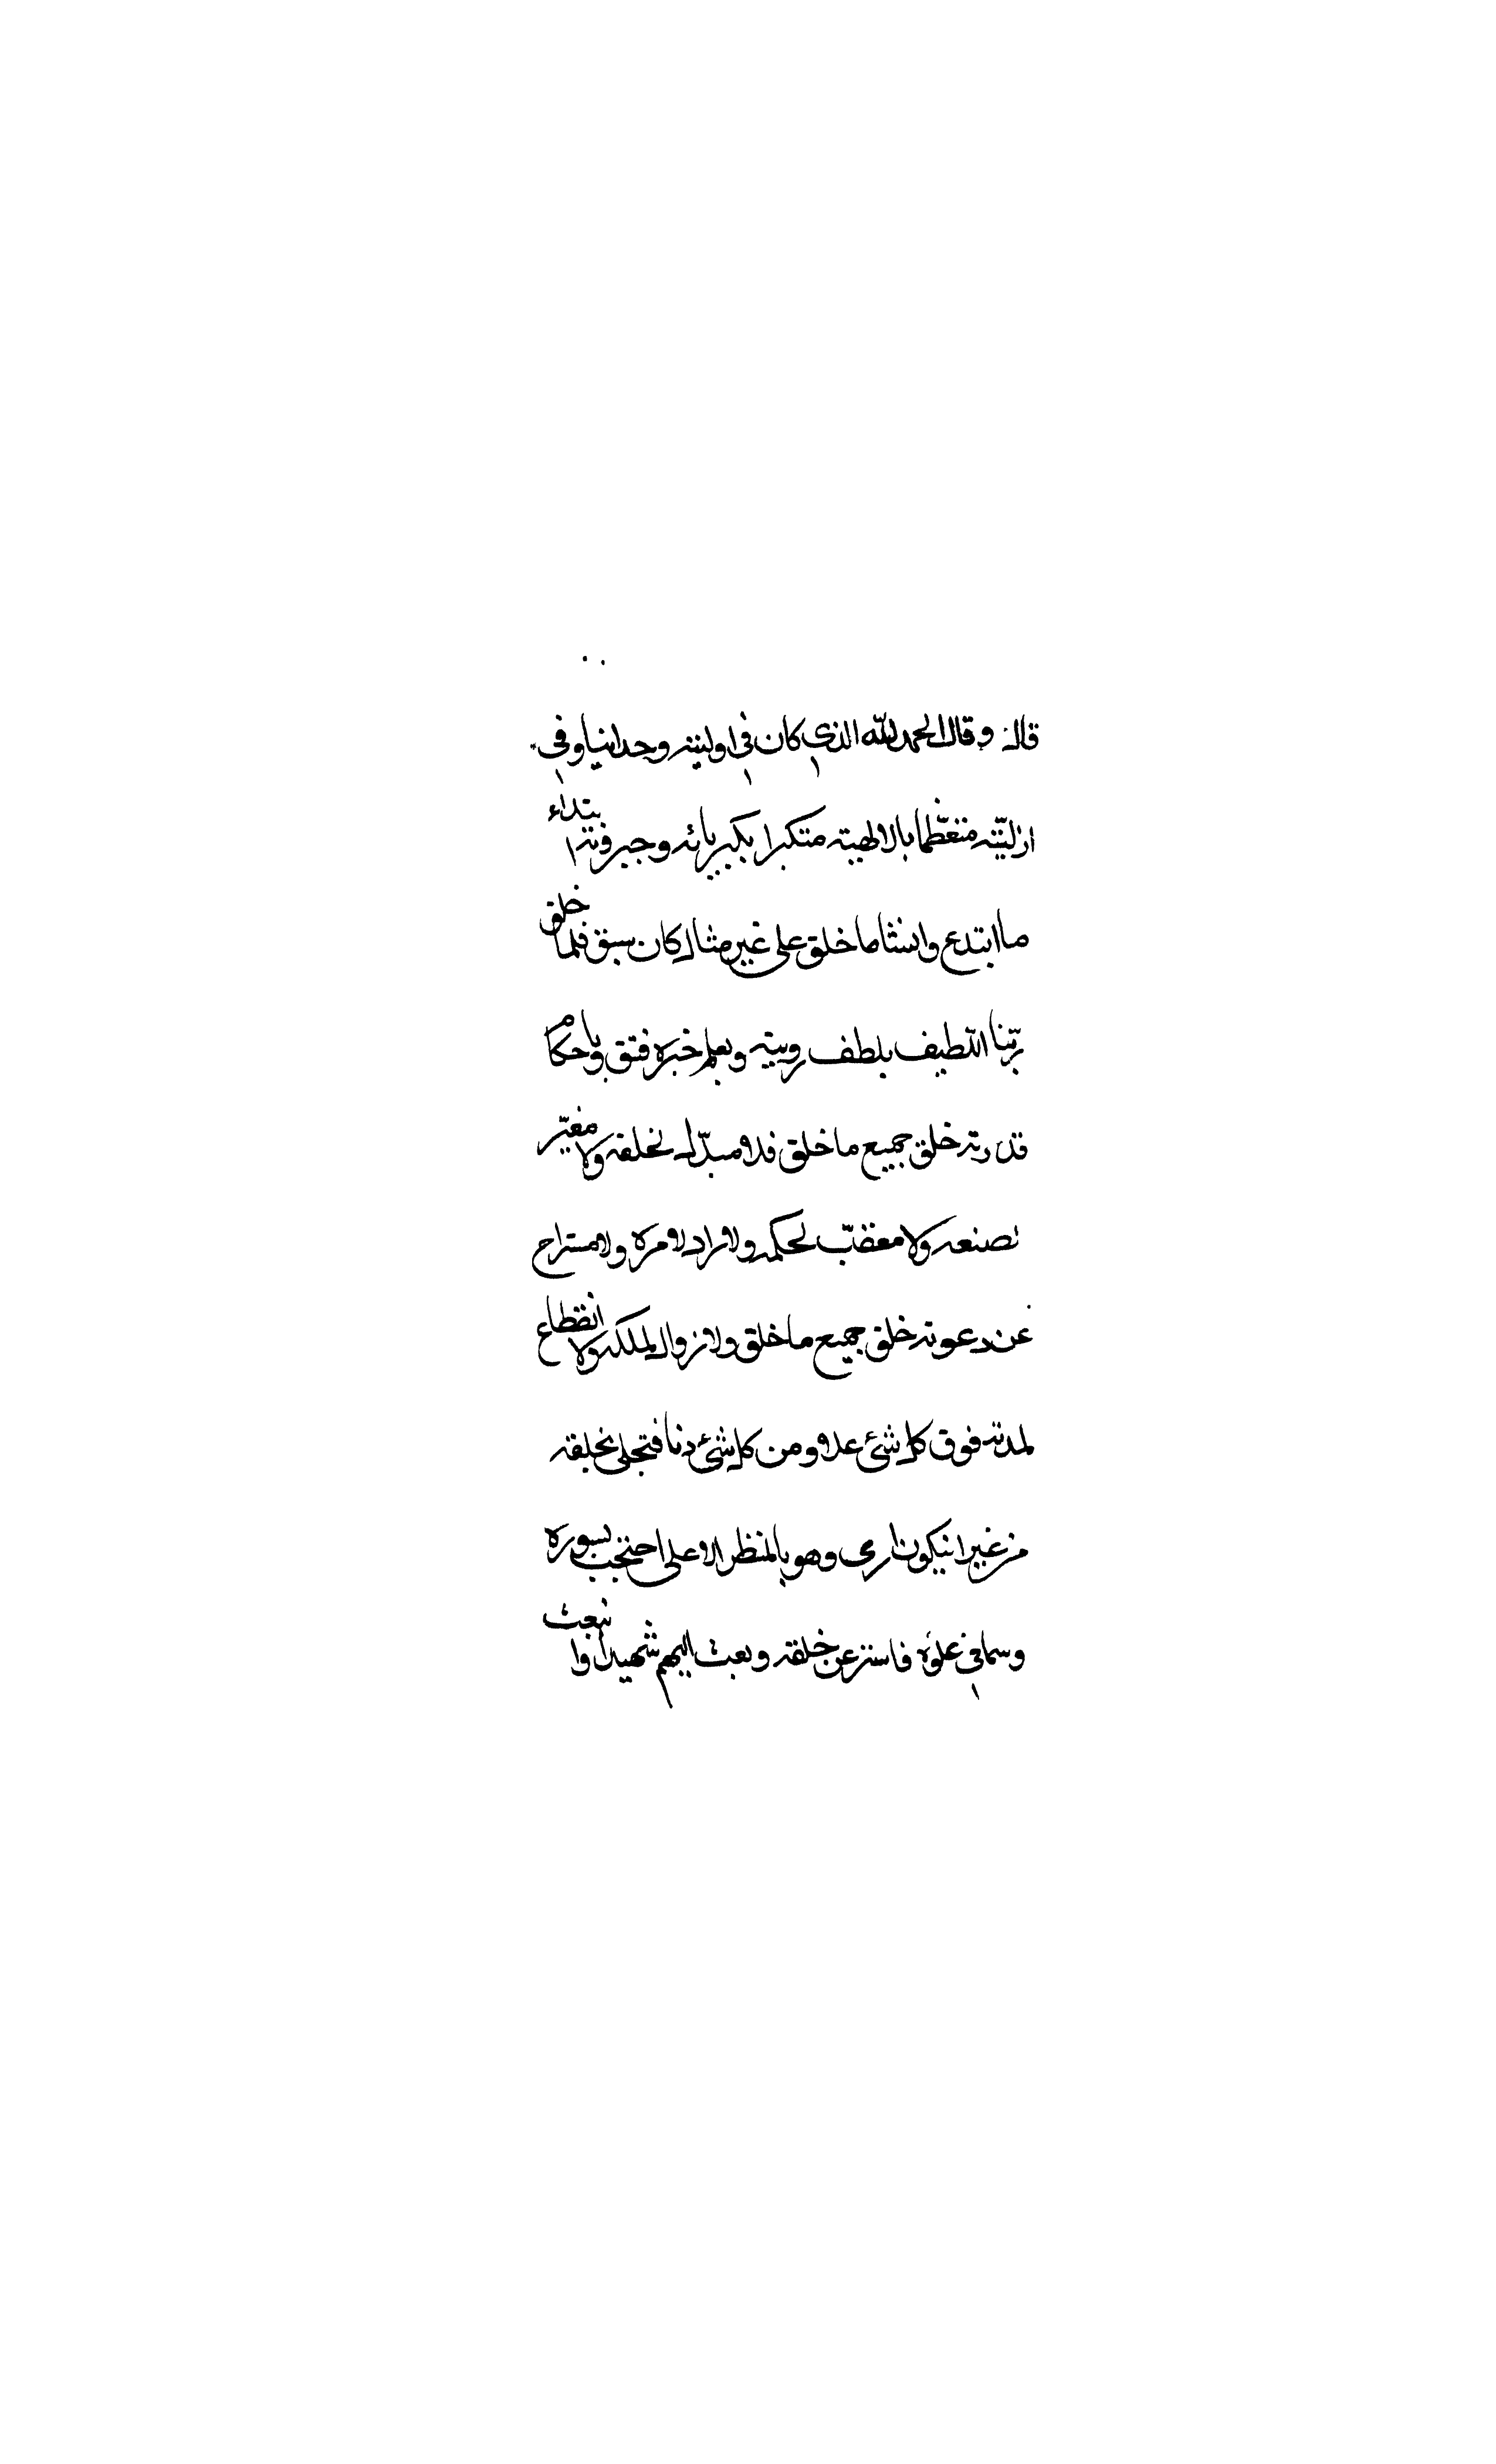 قال و قال الحمد لله الذي كان في اوليته وحدانيا وفي
ازليته متعظما بالالهية متكبرا بكبريائه وجبروته ابتداء
ما ابتدع وانشا ما خلق على غير مثال كان سبق فلما خلق
ربّنا اللطيف بلطف ربوبيته وبعلم خبره فتق وباحكام
قدرته خلق جميع ما خلق فلا مبدّل لخلقه ولا مغيّر
لصنعه ولا معقّب لحكمه ولا راد لامره ولا مستراح
عن دعوته خلق جميع ما خلق ولا زوال لملكه ولا انقطاع
لمدته فوق كل شئ علا ومن كل شئ دنا فتجلى لخلقه
من غير ان يكون ارى وهو بالمنظر الاعلى احتجب بنوره
وسما في علوّه فاستتر عن خلقه وبعث اليهم شهيدا وانبعث